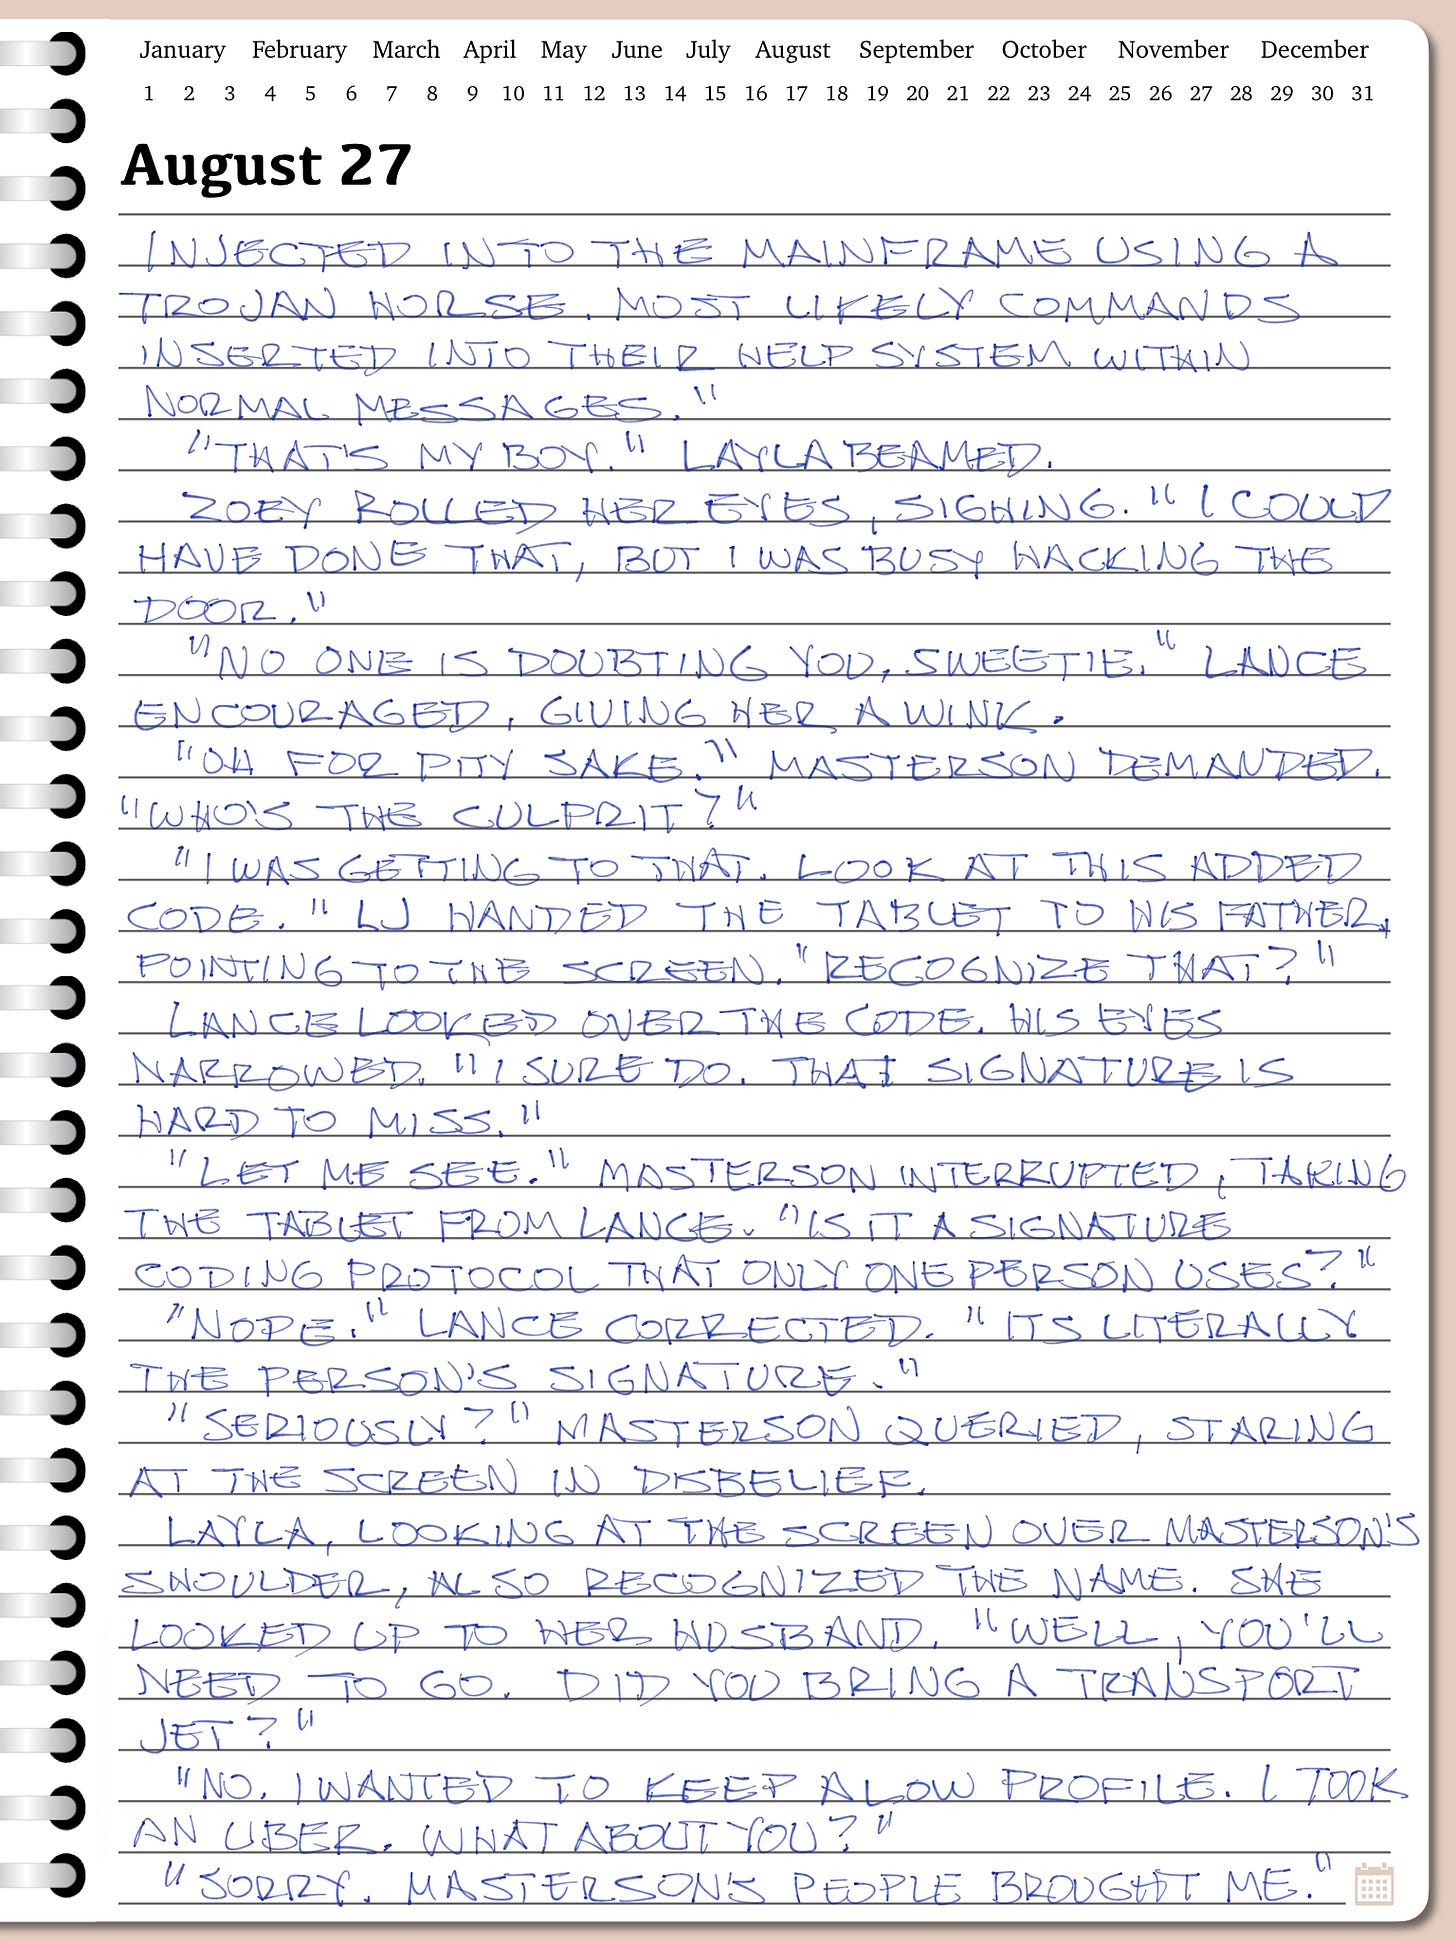 January February March April May June July August September October November December
1 2 3 4 5 6 7 8 9 10 11 12 13 14 15 16 17 18 19 20 21 22 23 24 25 26 27 28 29 30 31
August 27
INJECTED INTO THE MAINFRAME USING A
TROJAN HORSE. MOST LIKELY COMMANDS
INSERTED INTO THEIR HELP SYSTEM WITHIN
NORMAL MESSAGES."
"THAT'S MY BOY." LAYLA BEAMED.
ZOEY ROLLED HER EYES, SIGHING. "I COULD
HAVE DONE THAT, BUT I WAS BUSY HACKING THE
DOOR."
"NO ONE IS DOUBTING YOU, SWEETIE." LANCE
ENCOURAGED, GIVING HER A WINK.
"OH FOR PITY SAKE." MASTERSON DEMANDED.
"WHO'S THE CULPRIT?"
"I WAS GETTING TO THAT. LOOK AT THIS ADDED
CODE." LJ HANDED THE TABLET TO HIS FATHER,
POINTING TO THE SCREEN. "RECOGNIZE THAT?"
LANCE LOOKED OVER THE CODE. HIS EYES
NARROWED. "I SURE DO. THAT SIGNATURE IS
HARD TO MISS."
"LET ME SEE." MASTERSON INTERRUPTED, TAKING
THE TABLET FROM LANCE. "IS IT A SIGNATURE
CODING PROTOCOL THAT ONLY ONE PERSON USES?"
"NOPE." LANCE CORRECTED. "ITS LITERALLY
THE PERSON'S SIGNATURE."
"SERIOUSLY?" MASTERSON QUERIED, STARING
AT THE SCREEN IN DISBELIEF.
LAYLA, LOOKING AT THE SCREEN OVER MASTERSON'S
SHOULDER, ALSO RECOGNIZED THE NAME. SHE
LOOKED UP TO HER HUSBAND. "WELL, YOU'LL
NEED TO GO. DID YOU BRING A TRANSPORT
JET?"
"NO. I WANTED TO KEEP A LOW PROFILE. I TOOK
AN UBER. WHAT ABOUT YOU?"
"SORRY. MASTERSON'S PEOPLE BROUGHT ME."